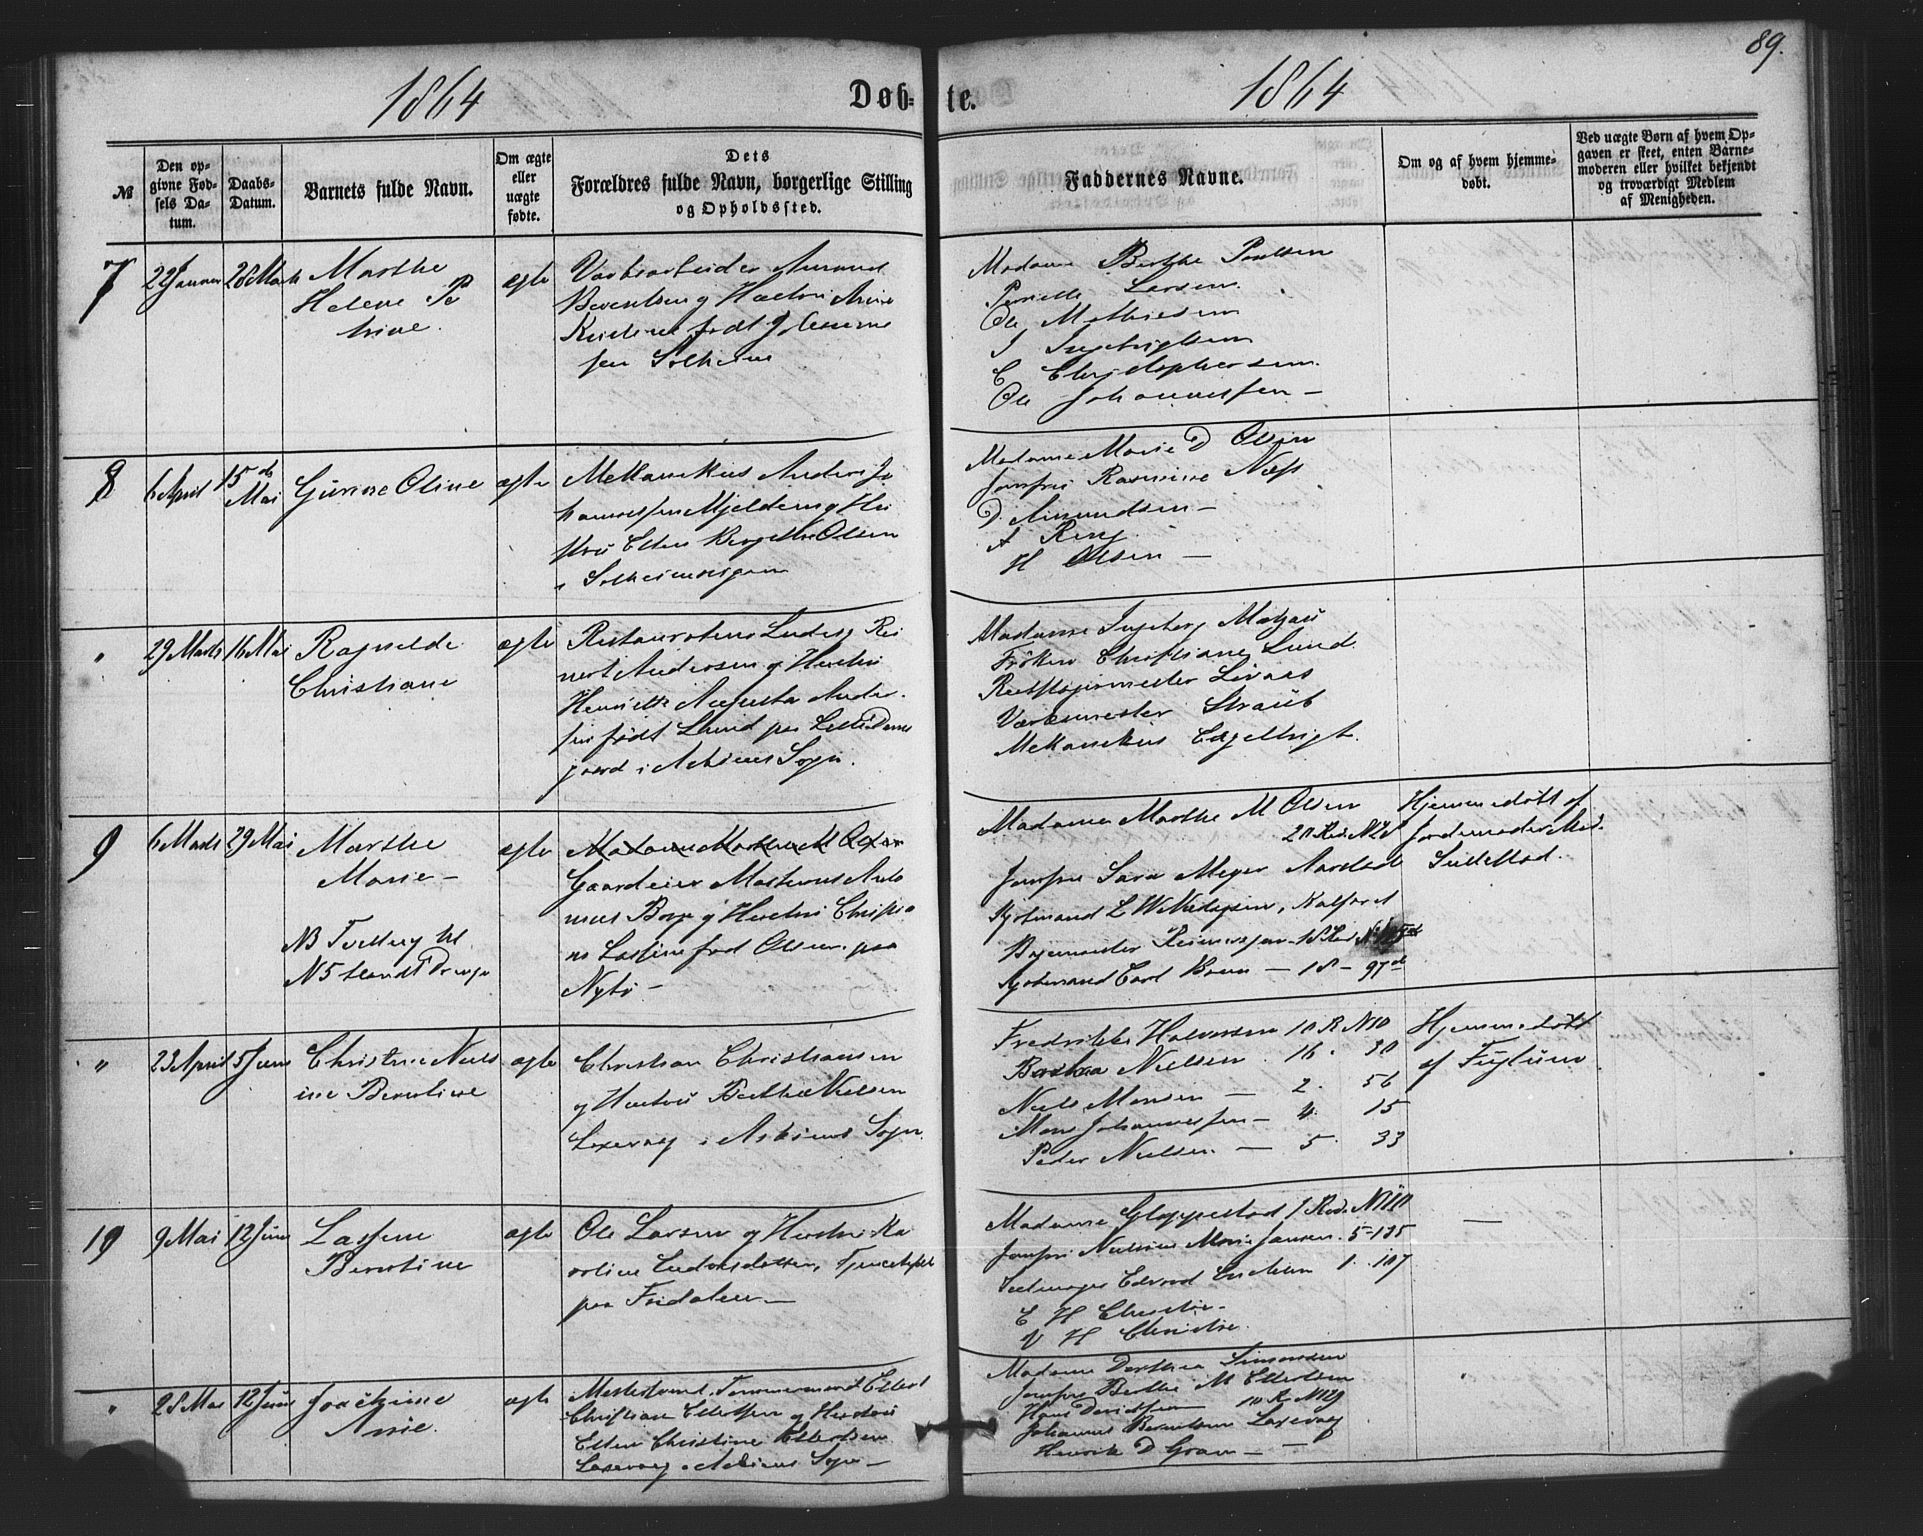 89.
1864
Døb-te.
1864
№
Den op-
givne Fød-
sels Da-
tum.
Daabs-
Datum.
Barnets fulde Navn.
Om ægte
eller
uægte
fødte.
Dets
Forældres fulde Navn, borgerlige Stilling
og Opholdssted.
Faddernes Navne.
Om og af hvem hjemme-
døbt.
Ved uægte Børn af hvem Op-
gaven er skeet, enten Barne-
moderen eller hvilket bekjendt
og troværdigt Medlem
af Menigheden.
7
22 Januar
28 Marts
Marthe
Helene Pe
trine.
ægte
Amund
Berentsen og Hustru Anne
født
sen Solheim
Madame Berthe Poulsen
Pernille Larsen.
Ole Mathiesen
I Ingebrigtsen
C Christophersen.
Ole Johannessen —
8
6 April
15de
Mai
Gurine Oline
ægte
Mekanikus Anders Jo
hannessen Mjeldem og Hu
stru Ellen Bergithe Olsen
i Solheimsvigen
Madame Marie D Olsen
Jomfru Rasmine Næss
D. Amundsen —
A Ring
H Olsen —
"
29 Marts
16 Mai
Ragnilde
Christiane
ægte
Restaurateur Ludvig Rei
nert Andersen og Hustru
Henriette Augusta Ander-
sen født Lund paa Lille Dams
gaard i Askøens Sogn.
Madame Ingeborg
Frøken Christiane Lund.
Livaas
Værkmester Straub
Mekanikus Engelbrigt.
9
6 Marts
29 Mai
Marthe
Marie —
NB Tvilling til
N5 Randi Drenge
ægte
Madame Marthe M Olsen
Gaardeier Martinus Anto
nius Borge og Hustru Christia
ne født Olsen paa
Nybø —
Madame Marthe M Olsen
20 Rod. N 28
Jomfru Sara Meyer Aarstad
Kjøbmand L W Kalfaret
Kjøbmand Carl Bruun — 18 — 97
Hjemmedøbt af
Jordemoder Mad.
Sellestad.
"
23 April
5 Juni
Christine Niels
ine Berntine
ægte
Christian Christiansen
og Hustru Berthe Nielsen
Laxevaag i Askøens Sogn.
Fredrikke Halvorsen 10 R N10
Barbra Nielsen 16. 30
Niels Monsen — 2. 56
Mons Johannessen — 4. 15
Peder Nielsen — 5. 33
Hjemmedøbt
af Fuglum
10
9 Mai
12 Juni
Lassine
Berntine
ægte
Ole Larsen og Hustru Ka
roline Ludvigsdatter, Tjenestefolk
paa Fridalen —
Madame Gloppestad 1 Rod. N110
Jomfru Nielsine Marie Jansen. 5 - 135
Edvard 1. 107
C H Christie.
V H Christie.
—
"
28 Mai
12 Juni
Joachime
Anne.
ægte
Mestersvend Tømmermand Ellert
Christian Ellertsen og Hustru
Ellen Christine Ellertsen
Laxevaag i Askøens Sogn —
Madame Dorthea Simonsen
Jomfru Berthe M Ellertsen
Hans Davidsen 10 R N129
Johannes Berntsen Laxevaag
Henrik D Gran —